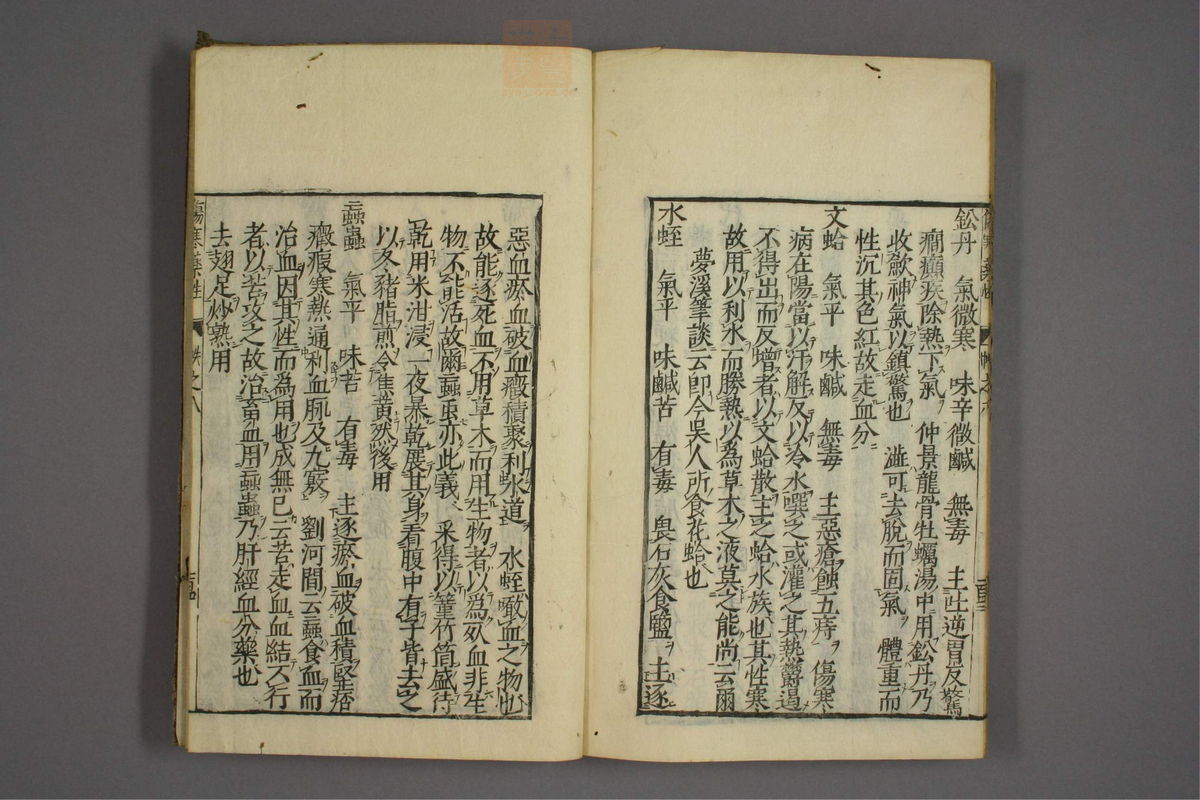 鈆丹　氣微寒　味辛微鹹　無毒　主吐逆胃反驚
癎癲疾除熱下氣　仲景龍骨牡蠣湯中用鈆丹乃
收歛神氣以鎮驚也　澁可去脫而固氣　體重而
性沉其色紅故走血分
文蛤　氣平　味鹹　無毒　主惡瘡蝕五痔　傷寒
病在陽當以汗解反以冷水噀之或灌之其熱欝遏
不得出而反增者以文蛤散主之蛤水族也其性寒
故用以利水而勝熱以爲草木之液莫之能尚云爾
夢溪筆談云卽今吳人所食花蛤也
水蛭　氣平　味鹹苦　有毒　畏石灰食鹽　主逐
惡血瘀血破血癥積聚利水道　水蛭噉血之物也
故能逐死血不用草木而用生物者以爲死血非生
物不能活故爾蝱䖝亦此義　采得以䈽竹筒盛待
乾用米泔浸一夜暴乾展其身看腹中有子皆去之
以冬豬脂煎令焦黃然後用
蝱蟲　氣平　味苦　有毒　主逐瘀血破血積堅痞
癥瘕寒熱通利血脉及九竅　劉河間云蝱食血而
治血因其性而爲用也成無已云苦走血血結不行
者以苦攻之故治畜血用蝱蟲乃肝經血分藥也
去翅足炒熟用
傷寒藥性　卷之八